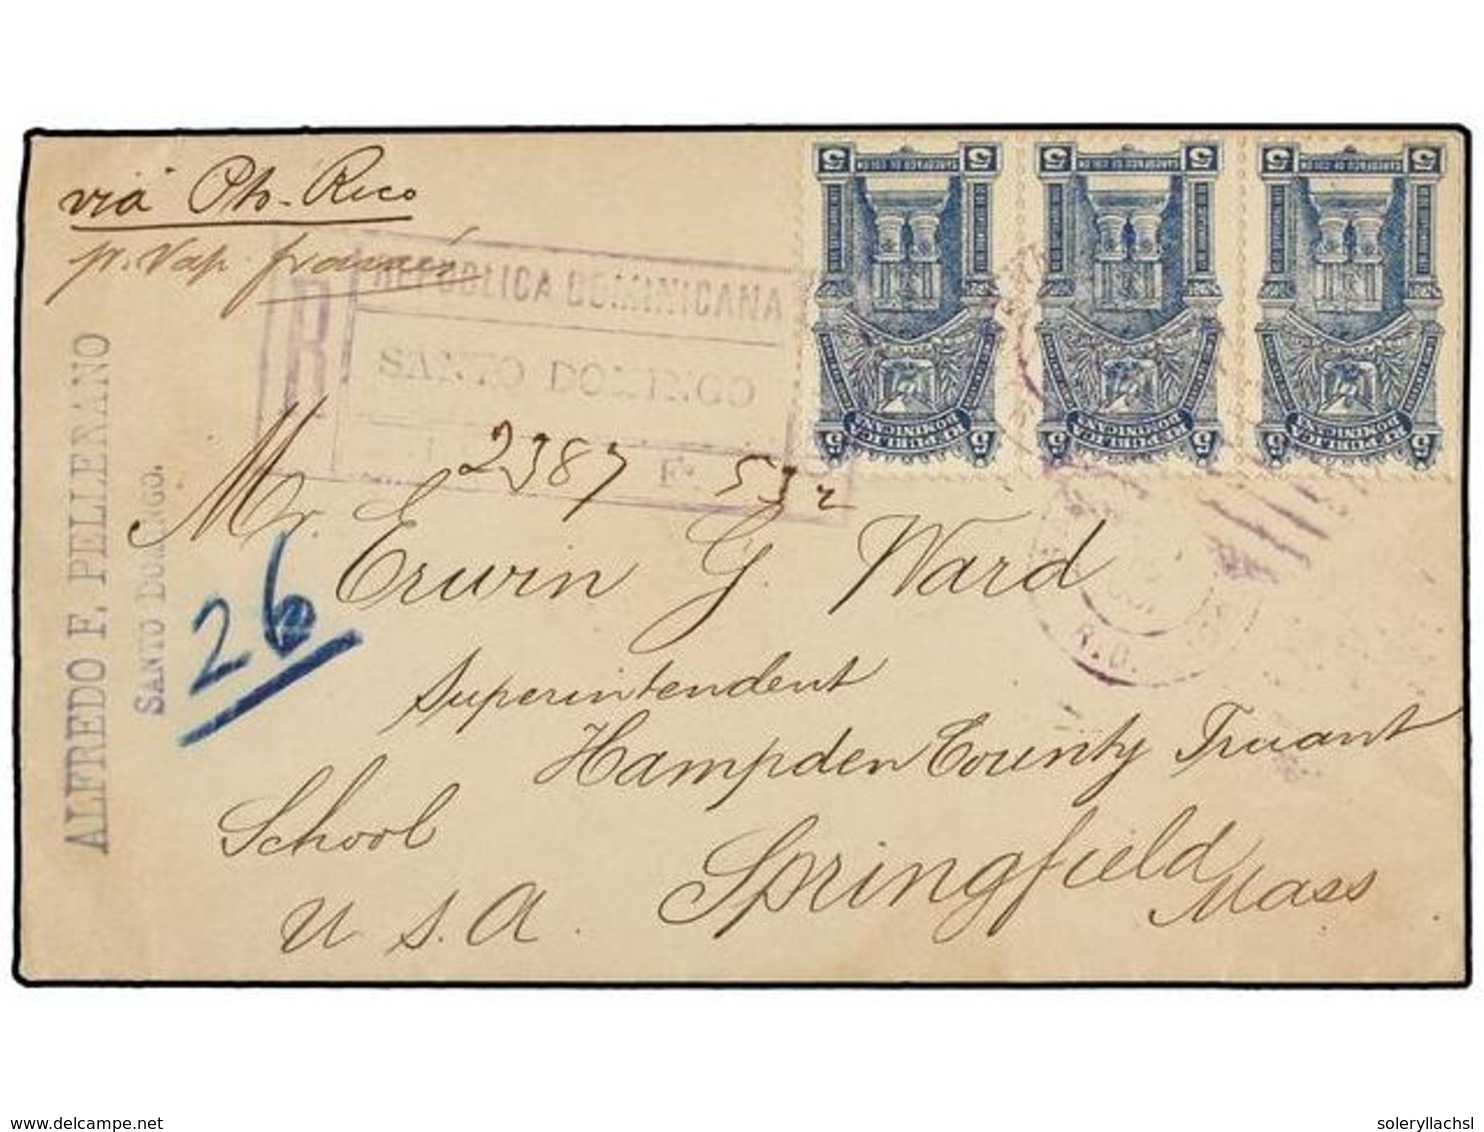 via Pto-Rico
p. Vap. francés
REPUBLICA DOMINICANA
R
SANTO DOMINGO
2387 532
ALFREDO F. PELLERANO
SANTO DOMINGO.
26
Mr. Erwin G. Ward
Superintendent
Hampden County Truant
School
Springfield
Mass
U.S.A.
5 5
REPUBLICA
DOMINICANA
5 5
5 5
REPUBLICA
DOMINICANA
5 5
5 5
REPUBLICA
DOMINICANA
5 5
R.D.
delcampe.net
soleryllachsl